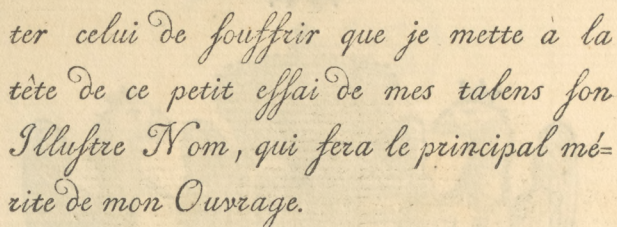 ter celui de souffrir que je mette à la
tête de ce petit essai de mes talens son
Illustre Nom, qui fera le principal mé=
rite de mon Ouvrage.